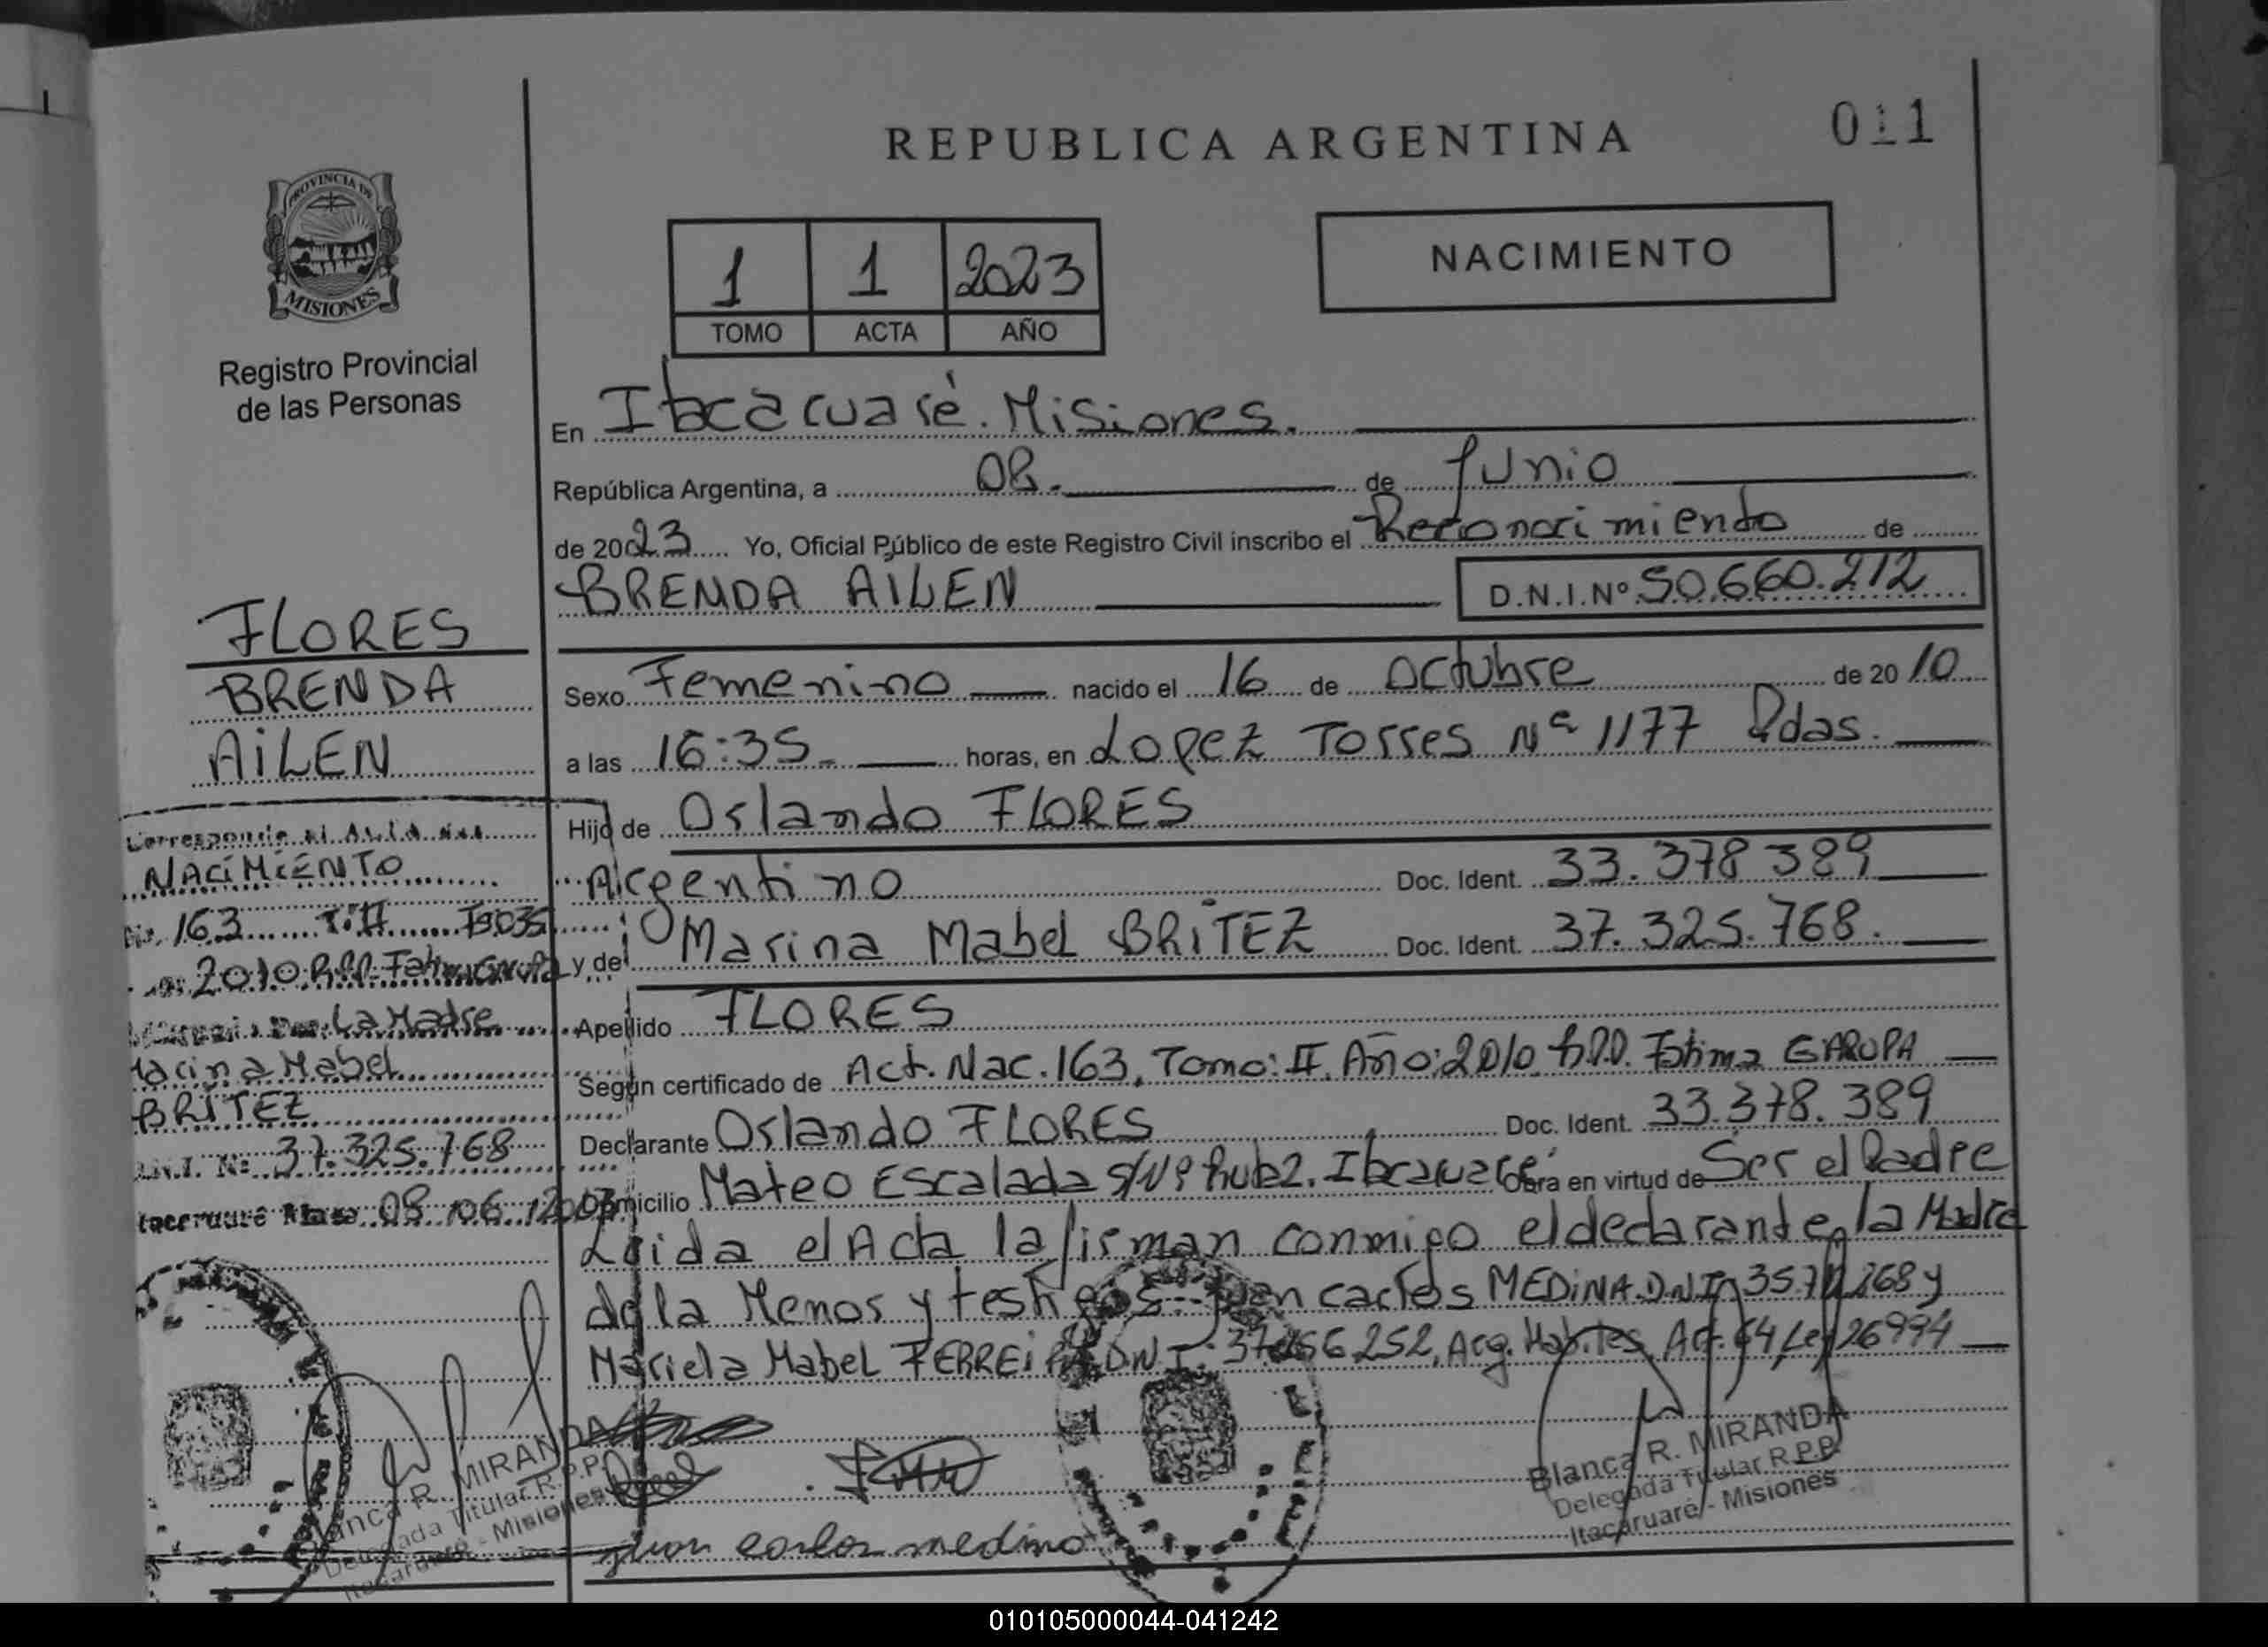 REPUBLICA ARGENTINA
011
PROVINCIA DE
MISIONES
Registro Provincial
de las Personas
1 1 2023
TOMO ACTA AÑO
NACIMIENTO
En Itacaruaré. Misiones.
República Argentina, a 08. de Junio
de 2023 Yo, Oficial Público de este Registro Civil inscribo el Reconocimiento de
BRENDA AILEN D.N.I.Nº 50.660.212
Sexo Femenino nacido el 16 de Octubre de 20 10
a las 16:35 horas, en Lopez Torres Nº 1177 Pdas.
Hijo de Orlando FLORES
Argentino Doc. Ident. 33.378 389
y de Marina Mabel BRITEZ Doc. Ident. 37.325.768.
Apellido FLORES
Según certificado de Act. Nac. 163, Tomo: II, Año: 2010 R.P.P. Fátima GARUPA
Declarante Orlando FLORES Doc. Ident. 33.378.389
Domicilio Mateo Escalada S/Nº Ruta2. Itacaruaré Obra en virtud de Ser el Padre
Leida el Acta la firman conmigo el declarante, la Madre
de la Menor y testigos Juan Carlos MEDINA. DNI 268 y
Mariela Mabel FERREIRA D.N.I. 252, Acg. Habiles, Art. 64, Ley 26994
Juan carlos medina
Blanca R. MIRANDA
Delegada Titular R.P.P.
Itacaruaré - Misiones
FLORES
BRENDA
AILEN
Corresponde al Acta de
NACIMIENTO
No. 163 T: II Fº 035
2010 R.P.P. Fatima GARUPA
La Madre
Marina Mabel
BRITEZ
D.N.I. Nº 37.325.768
Itacaruaré Mnes 08 /06 /2023
Blanca R. MIRANDA
Delegada Titular R.P.P.
Itacaruaré - Misiones
010105000044-041242